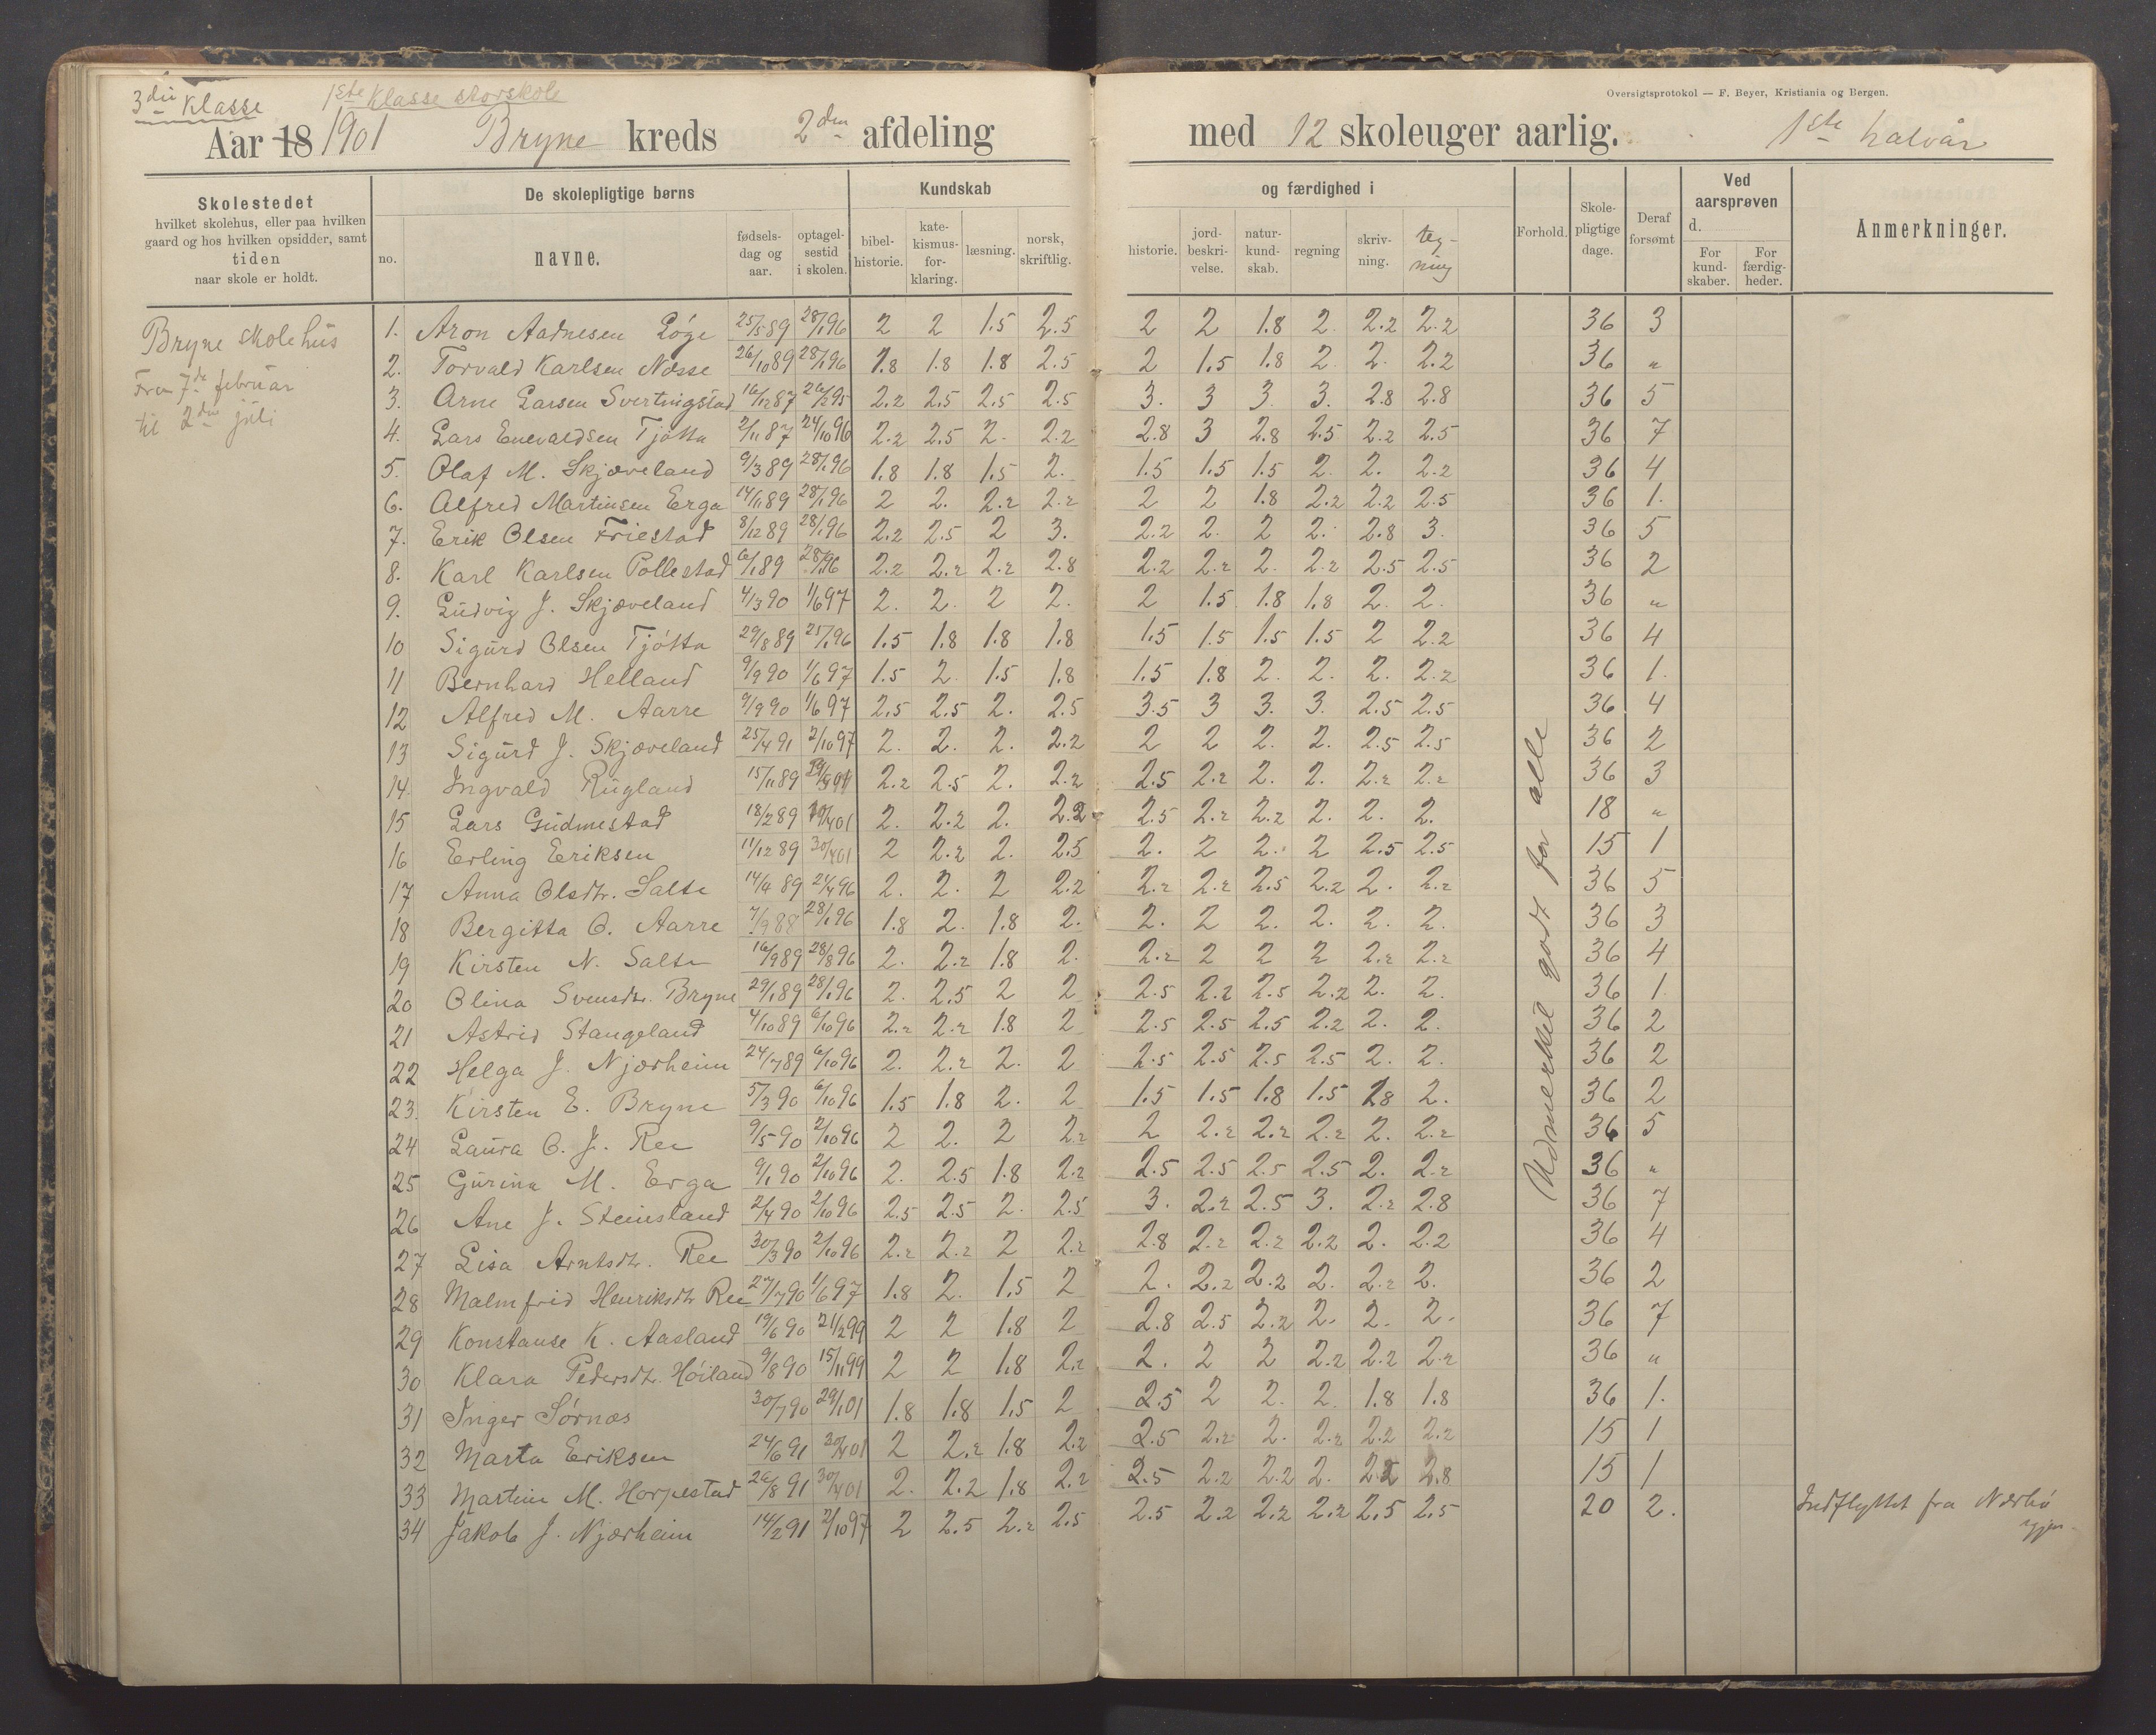 3die Klasse
1ste Klasse storskole
Oversigtsprotokol — F. Beyer, Kristiania og Bergen.
Aar 18 1901 Bryne kreds 2den afdeling med 12 skoleuger aarlig. 1ste halvår
Skolestedet
hvilket skolehus, eller paa hvilken
gaard og hos hvilken opsidder, samt
tiden
naar skole er holdt.
De skolepligtige børns
no. navne. fødsels-dag og aar. optagel-sestid i skolen.
Kundskab og færdighed i
bibel-historie. kate-kismus-for-klaring. læsning. norsk, skriftlig. historie. jord-beskri-velse. natur-kund-skab. regning skriv-ning. teg-ning
Forhold. Skole-pligtige dage. Deraf forsømt
Ved aarsprøven
d.
For kund-skaber. For færdig-heder.
Anmerkninger.
Bryne skolehus
Fra 7de februar
til 2den juli
Udmerket godt for alle
1. Aron Aadnesen Løge 25/5 89 28/1 96 2 2 1.5 2.5 2 2 1.8 2. 2.2 2.2 36 3
2. Torvald Karlsen Næsse 26/10 89 28/1 96 1.8 1.8 1.8 2.5 2 1.5 1.8 2 2. 2.2 36 "
3. Arne Larsen Svertingstad 16/12 87 26/2 95 2.2 2.5 2.5 2.5 3. 3 3. 3. 2.8 2.8 36 5
4. Lars Enevaldsen Tjøtta 2/11 87 24/10 96 2.2 2.5 2. 2.2 2.8 3 2.8 2.5 2.2 2.5 36 7
5. Olaf M. Skjæveland 9/3 89 28/1 96 1.8 1.8 1.5 2. 1.5 1.5 1.5 2. 2. 2.2 36 4
6. Alfred Martinsen Erga 14/11 89 28/1 96 2 2. 2.2 2.2 2 2 1.8 2.2 2.2 2.5 36 1.
7. Erik Olsen Friestad 8/12 89 28/1 96 2.2 2.5 2 3. 2.2 2. 2 2. 2.8 3. 36 5
8. Karl Karlsen Pollestad 6/1 89 28/1 96 2.2 2.2 2.2 2.8 2.2 2.2 2. 2.2 2.5 2.5 36 2
9. Ludvig J. Skjæveland 4/3 90 1/6 97 2. 2. 2 2. 2 1.5 1.8 1.8 2. 2. 36 "
10 Sigurd Olsen Tjøtta 29/8 89 25/1 96 1.5 1.8 1.8 1.8 1.5 1.5 1.5 1.5 2 2.2 36 4
11 Bernhard Helland 9/9 90 1/6 97 1.5 2. 1.5 1.8 1.5 1.8 2. 2. 2. 2.2 36 1.
12 Alfred M. Aarre 9/9 90 1/6 97 2.5 2.5 2. 2.5 3.5 3 3. 3. 2.5 2.5 36 4
13 Sigurd J. Skjæveland 25/4 91 2/10 97 2. 2. 2. 2.2 2 2 2. 2. 2.5 2.5 36 2
14. Ingvald Rugland 15/11 89 2.2 2.5 2. 2.2 2.5 2.2 2. 2. 2.2 2.2 36 3
15 Lars Gudmestad 18/2 89 2. 2.2 2. 2.2 2.5 2.2 2.2 2. 2. 2. 18 "
16 Erling Eriksen 11/12 89 30/4 01 2 2.2 2. 2.5 2. 2 2. 2 2.5 2.5 15 1
17 Anna Olsdtr. Salte 14/4 89 24/4 96 2. 2. 2 2.2 2.2 2.2 2.5 2.2 2. 2.2 36 5
18 Bergitta O. Aarre 7/9 88 28/1 96 1.8 2. 1.8 2. 2. 2 2. 2. 2. 2. 36 3
19 Kirsten N. Salte 16/9 89 28/8 96 2. 2.2 1.8 2. 2.2 2 2 2 2.2 2.2 36 4
20 Olina Svensdtr. Bryne 29/1 89 28/1 96 2. 2.5 2 2 2.5 2.2 2.5 2.2 2. 2. 36 1.
21 Astrid Stangeland 4/10 89 6/10 96 2.2 2.2 1.8 2 2.5 2.5 2.5 2.2 2. 2. 36 2
22 Helga J. Njærheim 24/7 89 6/10 96 2. 2.2 2. 2 2.5 2.5 2.5 2.5 2. 2. 36 2
23. Kirsten E. Bryne 5/3 90 6/10 96 1.5 1.8 2. 2 1.5 1.5 1.8 1.5 1.8 2. 36 2
24 Laura O. J. Ree 9/5 90 2/10 96 2 2. 2 2.2 2 2.2 2.2 2.2 2. 2.2 36 5
25 Gurina M. Erga 9/1 90 2/10 96 2. 2.5 1.8 2.2 2.5 2.5 2.5 2.5 2. 2.2 36 "
26 Ane J. Steinsland 2/4 90 2/10 96 2.5 2.5 2. 2.5 3. 2.2 2.5 3. 2.2 2.8 36 7
27 Lisa Arntsdtr. Ree 30/3 90 2/10 96 2.2 2.2 2 2.2 2.8 2.2 2.2 2.2 2. 2.2 36 4
28 Malmfrid Henriksdtr Ree 27/7 90 1/6 97 1.8 2. 1.5 2 2. 2.2 2.2 2. 2.2 2. 36 2
29 Konstanse K. Aasland 19/6 90 21/2 99 2 2 1.8 2 2.8 2.5 2.2 2. 2. 2. 36 7
30 Klara Pedersdtr. Høiland 9/8 90 15/11 99 2 2 1.8 2.2 2. 2 2 2.2 2.2 2.2 36 "
31 Inger Sørnæs 30/7 90 29/1 01 1.8 1.8 1.5 2 2.5 2 2. 2. 1.8 1.8 36 1.
32 Marta Eriksen 24/6 91 30/4 01 2 2.2 1.8 2.2 2.5 2.2 2. 2.2 2.2 2.2 15 1
33 Martine M. Horpestad 26/8 91 30/4 01 2. 2.2 1.8 2.2 2.5 2.2 2.2 2. 2.2 2.8 15 1
34 Jakob J. Njærheim 14/2 91 2/10 97 2 2.5 2.2 2.5 2.5 2.2 2.2 2.2 2.5 2.5 20 2. Indflyttet fra Nærbø
igjen.